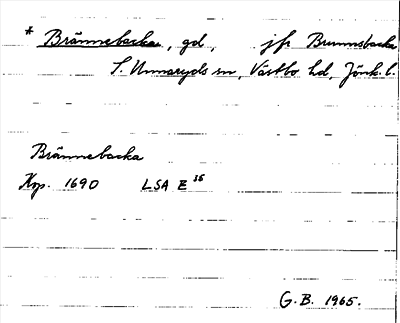 * Brännebacka, gd, jfr Brunnsbacka
S. Unnaryds sn, Västbo hd, Jönk. l.
Brännebacka
Kop. 1690 LSA E 36
G. B. 1965.